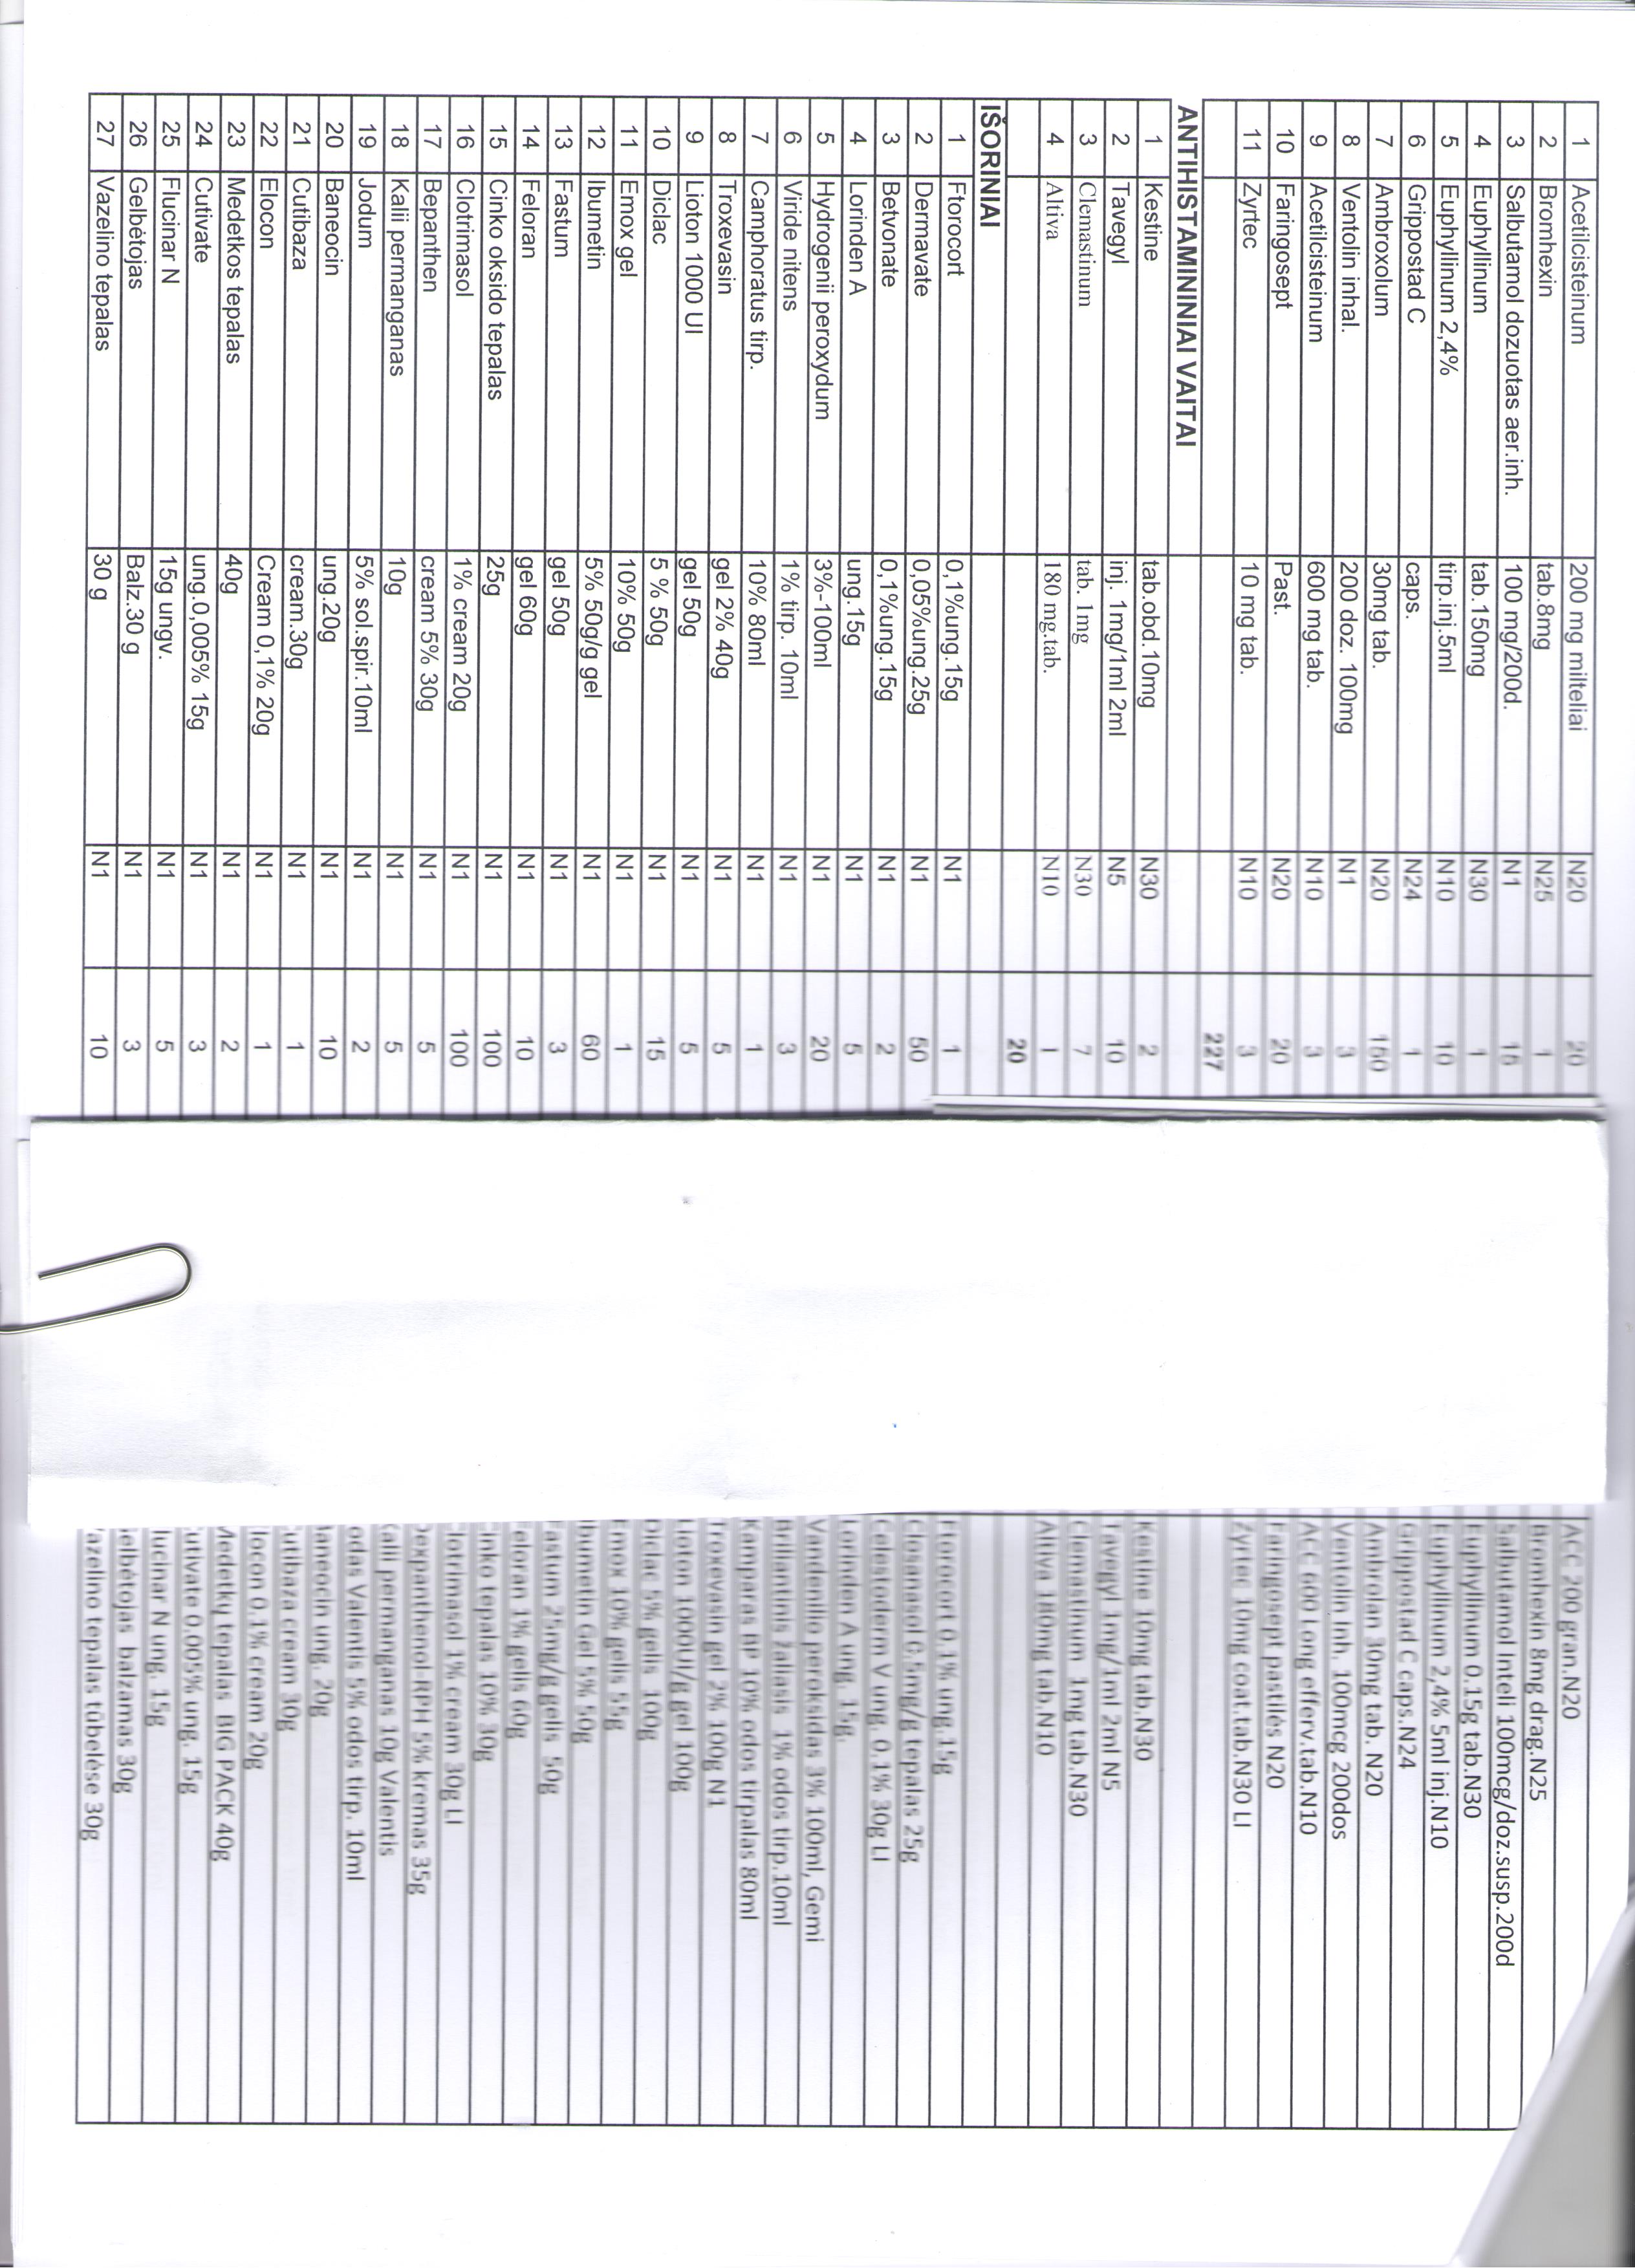 1 Acetilcisteinum 200 mg milteliai N20 20 ACC 200 gran.N20
2 Bromhexin tab.8mg N25 1 Bromhexin 8mg drag.N25
3 Salbutamol dozuotas aer.inh. 100 mg/200d. N1 15 Salbutamol Inteli 100mcg/doz.susp.200d
4 Euphyllinum tab.150mg N30 1 Euphyllinum 0.15g tab.N30
5 Euphyllinum 2,4% tirp.inj.5ml N10 10 Euphyllinum 2,4% 5ml inj.N10
6 Grippostad C caps. N24 1 Grippostad C caps.N24
7 Ambroxolum 30mg tab. N20 150 Ambrolan 30mg tab. N20
8 Ventolin inhal. 200 doz. 100mg N1 3 Ventolin Inh. 100mcg 200dos
9 Acetilcisteinum 600 mg tab. N10 3 ACC 600 Long efferv.tab.N10
10 Faringosept Past. N20 20 Faringosept pastilės N20
11 Zyrtec 10 mg tab. N10 3 Zyrtec 10mg coat.tab.N30 LI
227
ANTIHISTAMININIAI VAITAI
1 Kestine tab.obd.10mg N30 2 Kestine 10mg tab.N30
2 Tavegyl inj. 1mg/1ml 2ml N5 10 Tavegyl 1mg/1ml 2ml N5
3 Clemastinum tab. 1mg N30 7 Clemastinum 1mg tab.N30
4 Altiva 180 mg.tab. N10 1 Altiva 180mg tab.N10
20
IŠORINIAI
1 Ftorocort 0,1%ung.15g N1 1 Ftorocort 0.1% ung.15g
2 Dermavate 0,05%ung.25g N1 50 Closanasol 0,5mg/g tepalas 25g
3 Betvonate 0,1%ung.15g N1 2 Celestoderm V ung. 0.1% 30g LI
4 Lorinden A ung.15g N1 5 Lorinden A ung. 15g.
5 Hydrogenii peroxydum 3%-100ml N1 20 Vandenilio peroksidas 3% 100ml, Gemi
6 Viride nitens 1% tirp. 10ml N1 3 Briliantinis žaliasis 1% odos tirp.10ml
7 Camphoratus tirp. 10% 80ml N1 1 Kamparas BP 10% odos tirpalas 80ml
8 Troxevasin gel 2% 40g N1 5 Troxevasin gel 2% 100g N1
9 Lioton 1000 UI gel 50g N1 5 Lioton 1000U/g gel 100g
10 Diclac 5 % 50g N1 15 Diclac 5% gelis 100g
11 Emox gel 10% 50g N1 1 Emox 10% gelis 55g
12 Ibumetin 5% 50g/g gel N1 60 Ibumetin Gel 5% 50g
13 Fastum gel 50g N1 3 astum 25mg/g gelis 50g
14 Feloran gel 60g N1 10 eloran 1% gelis 60g
15 Cinko oksido tepalas 25g N1 100 inko tepalas 10% 30g
16 Clotrimasol 1% cream 20g N1 100 lotrimasol 1% cream 30g LI
17 Bepanthen cream 5% 30g N1 5 expanthenol-RPH 5% kremas 35g
18 Kalii permanganas 10g N1 5 alii permanganas 10g Valentis
19 Jodum 5% sol.spir.10ml N1 2 odas Valentis 5% odos tirp. 10ml
20 Baneocin ung.20g N1 10 aneocin ung. 20g
21 Cutibaza cream.30g N1 1 utibaza cream 30g
22 Elocon Cream 0,1% 20g N1 1 locon 0.1% cream 20g
23 Medetkos tepalas 40g N1 2 Medetkų tepalas BIG PACK 40g
24 Cutivate ung.0,005% 15g N1 3 utivate 0.005% ung. 15g
25 Flucinar N 15g ungv. N1 5 lucinar N ung. 15g
26 Gelbėtojas Balz.30 g N1 3 elbėtojas balzamas 30g
27 Vazelino tepalas 30 g N1 10 azelino tepalas tūbelėse 30g